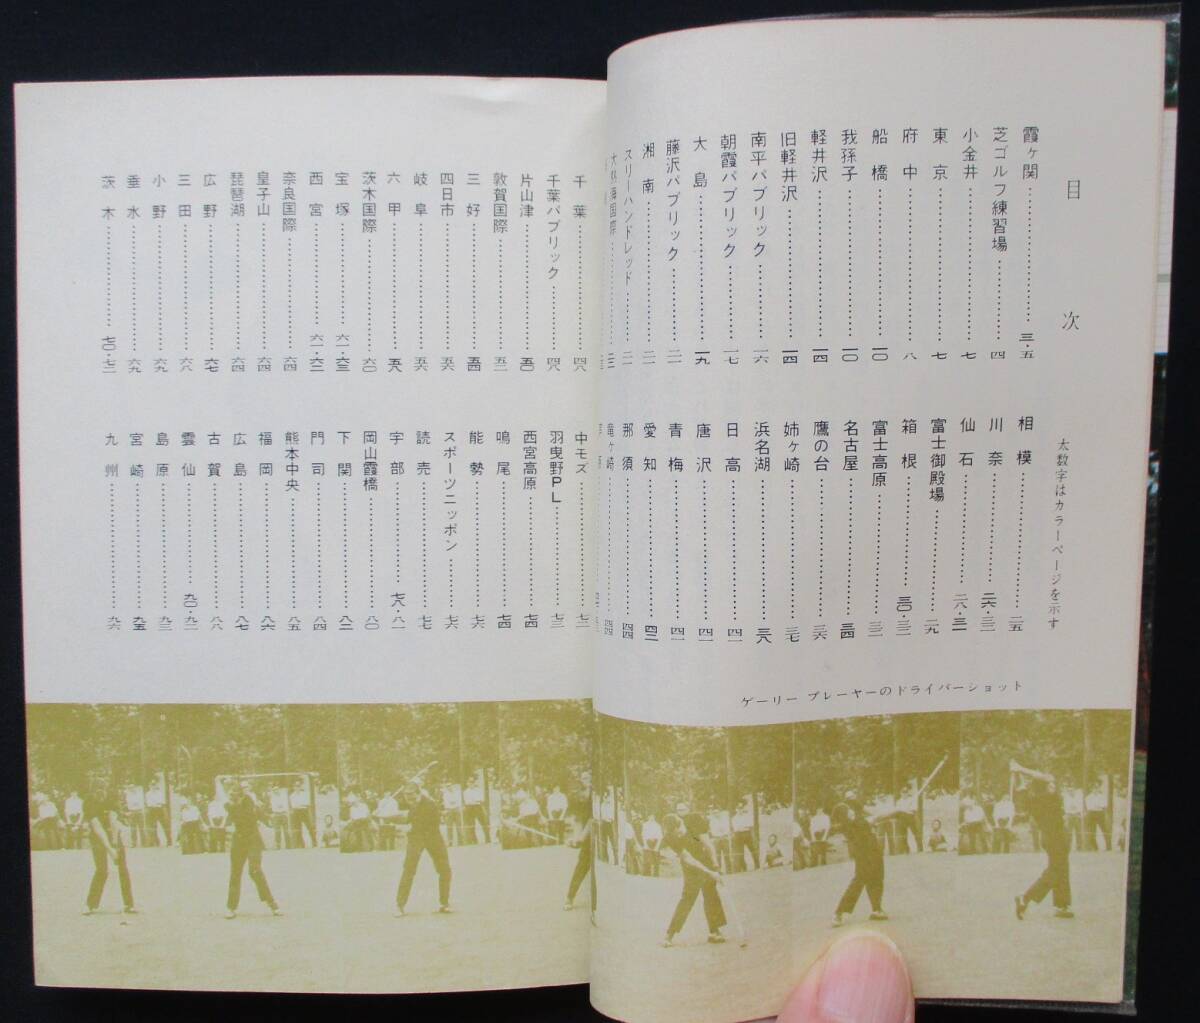 目次
太数字はカラーページを示す
霞ヶ関……………三・五
芝ゴルフ練習場……………四
小金井……………七
東京……………七
府中……………八
船橋……………一〇
我孫子……………一〇
軽井沢……………一四
旧軽井沢……………一四
南平パブリック……………一六
朝霞パブリック……………一七
大島……………一九
藤沢パブリック……………二一
湘南……………二一
スリーハンドレッド……………二一
相模……………二五
川奈……………二六・三二
仙石……………二八・三一
富士御殿場……………二九
箱根……………三〇・三二
富士高原……………三二
名古屋……………三四
鷹の台……………三六
姉ヶ崎……………三七
浜名湖……………三八
日高……………四一
唐沢……………四一
青梅……………四一
愛知……………四三
那須……………四四
竜ヶ崎……………四四
ゲーリー プレーヤーのドライバーショット
千葉……………四八
千葉パブリック……………四八
片山津……………五〇
敦賀国際……………五二
三好……………五四
四日市……………五六
岐阜……………五六
六甲……………五八
茨木国際……………六〇
宝塚……………六一・六三
西宮……………六一・六三
奈良国際……………六四
皇子山……………六四
琵琶湖……………六四
広野……………六七
三田……………六八
小野……………六九
垂水……………六九
茨木……………七〇・七二
中モズ……………七二
羽曳野PL……………七三
西宮高原……………七四
鳴尾……………七四
能勢……………七六
スポーツニッポン……………七六
読売……………七七
宇部……………七八・八一
岡山霞橋……………八〇
下関……………八二
門司……………八四
熊本中央……………八五
福岡……………八六
広島……………八七
古賀……………八八
雲仙……………九〇・九二
島原……………九三
宮崎……………九五
九州……………九六